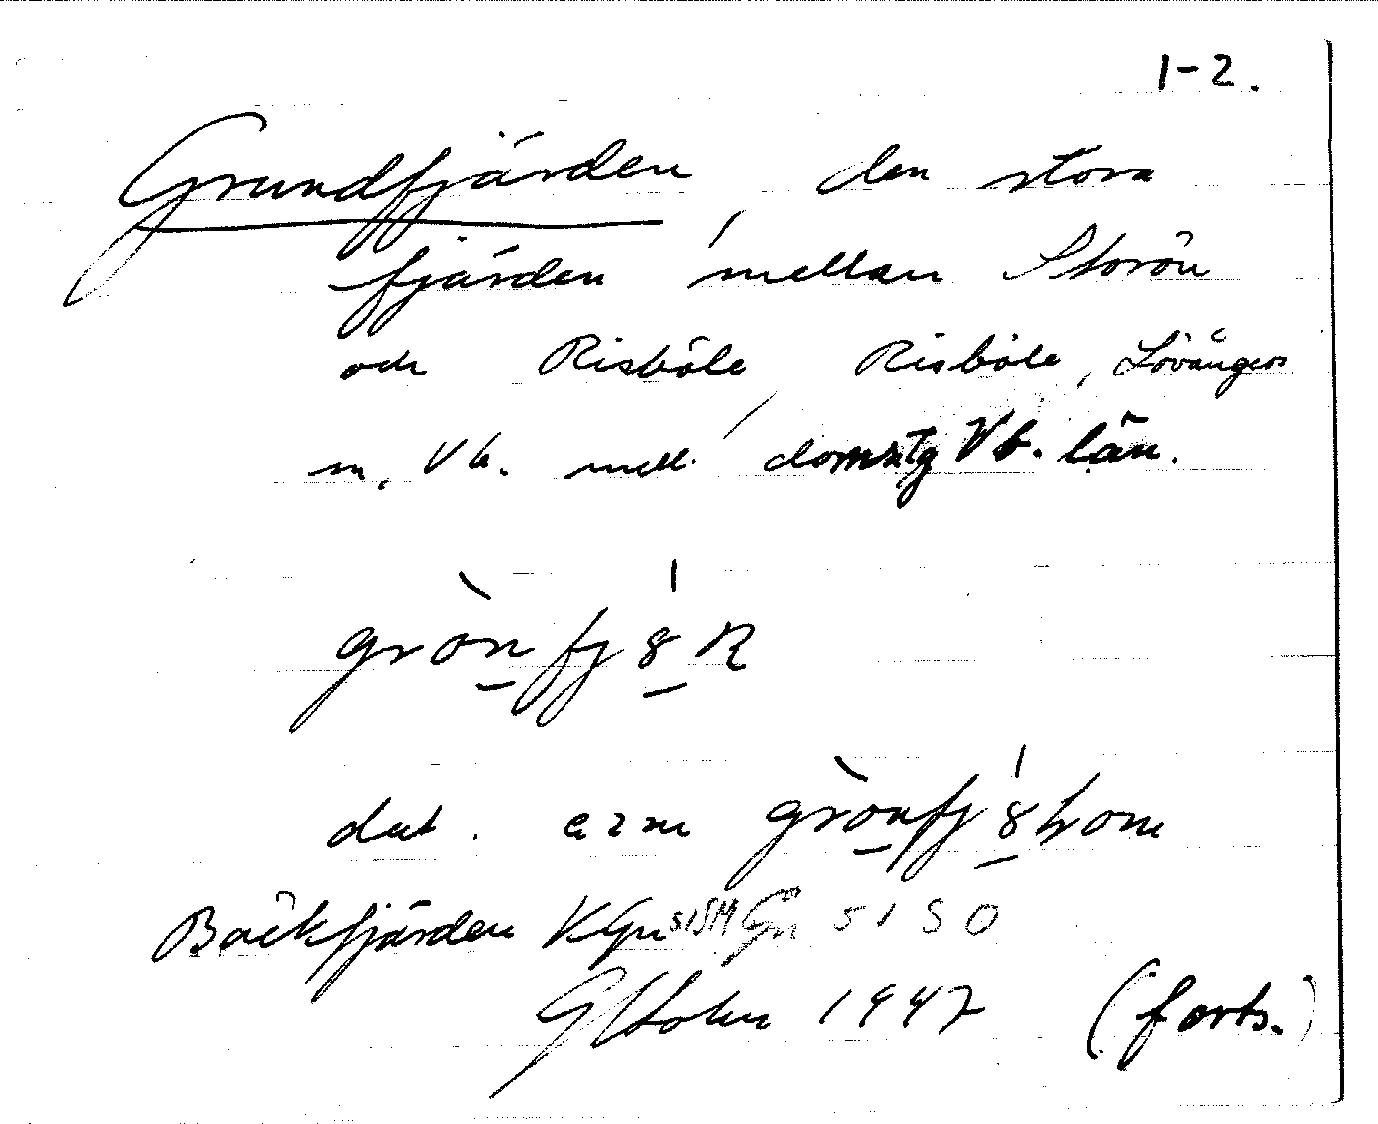 1-2.
Grundfjärden, den stora
fjärden mellan Storön
och Risböle, Risböle, Lövångers
sn, Vb. mell. domstg Vb. län.
grònfj 8 R
dat.
Bäckfjärden KGn 5150
1947 (forts.)